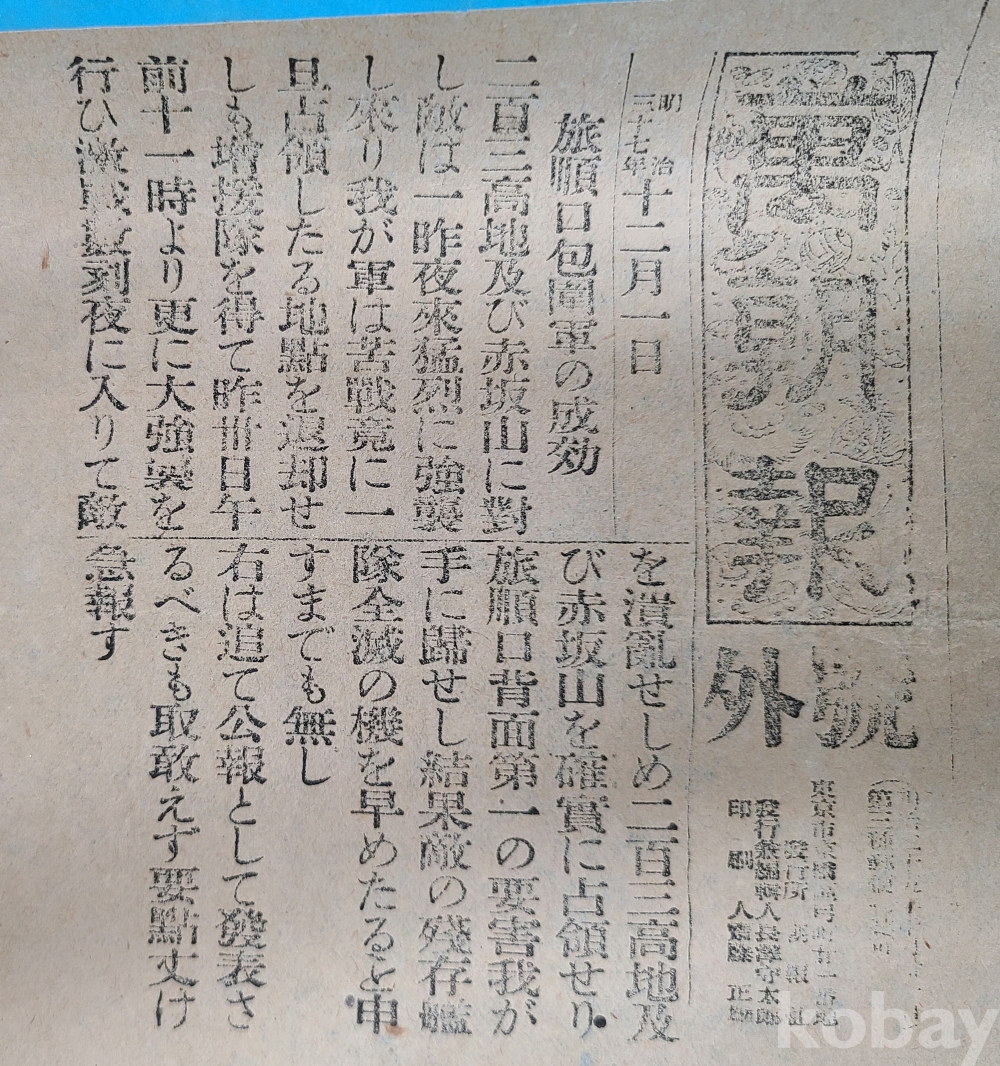 萬朝報
號外
發行所 朝報社
印刷人
明治三十七年十二月一日
旅順口包圍軍の成効
二百三高地及び赤坂山に對
し敵は一昨夜來猛烈に強襲
し來り我が軍は苦戰竟に一
旦占領したる地點を退却せ
しも增援隊を得て昨卅日午
前十一時より更に大強襲を
行ひ激戰數刻夜に入りて敵
を潰亂せしめ二百三高地及
び赤坂山を確實に占領せり
旅順口背面第一の要害我が
手に歸せし結果敵の殘存艦
隊全滅の機を早めたると申
すまでも無し
右は追て公報として發表さ
るべきも取敢えず要點丈け
急報す
kobay